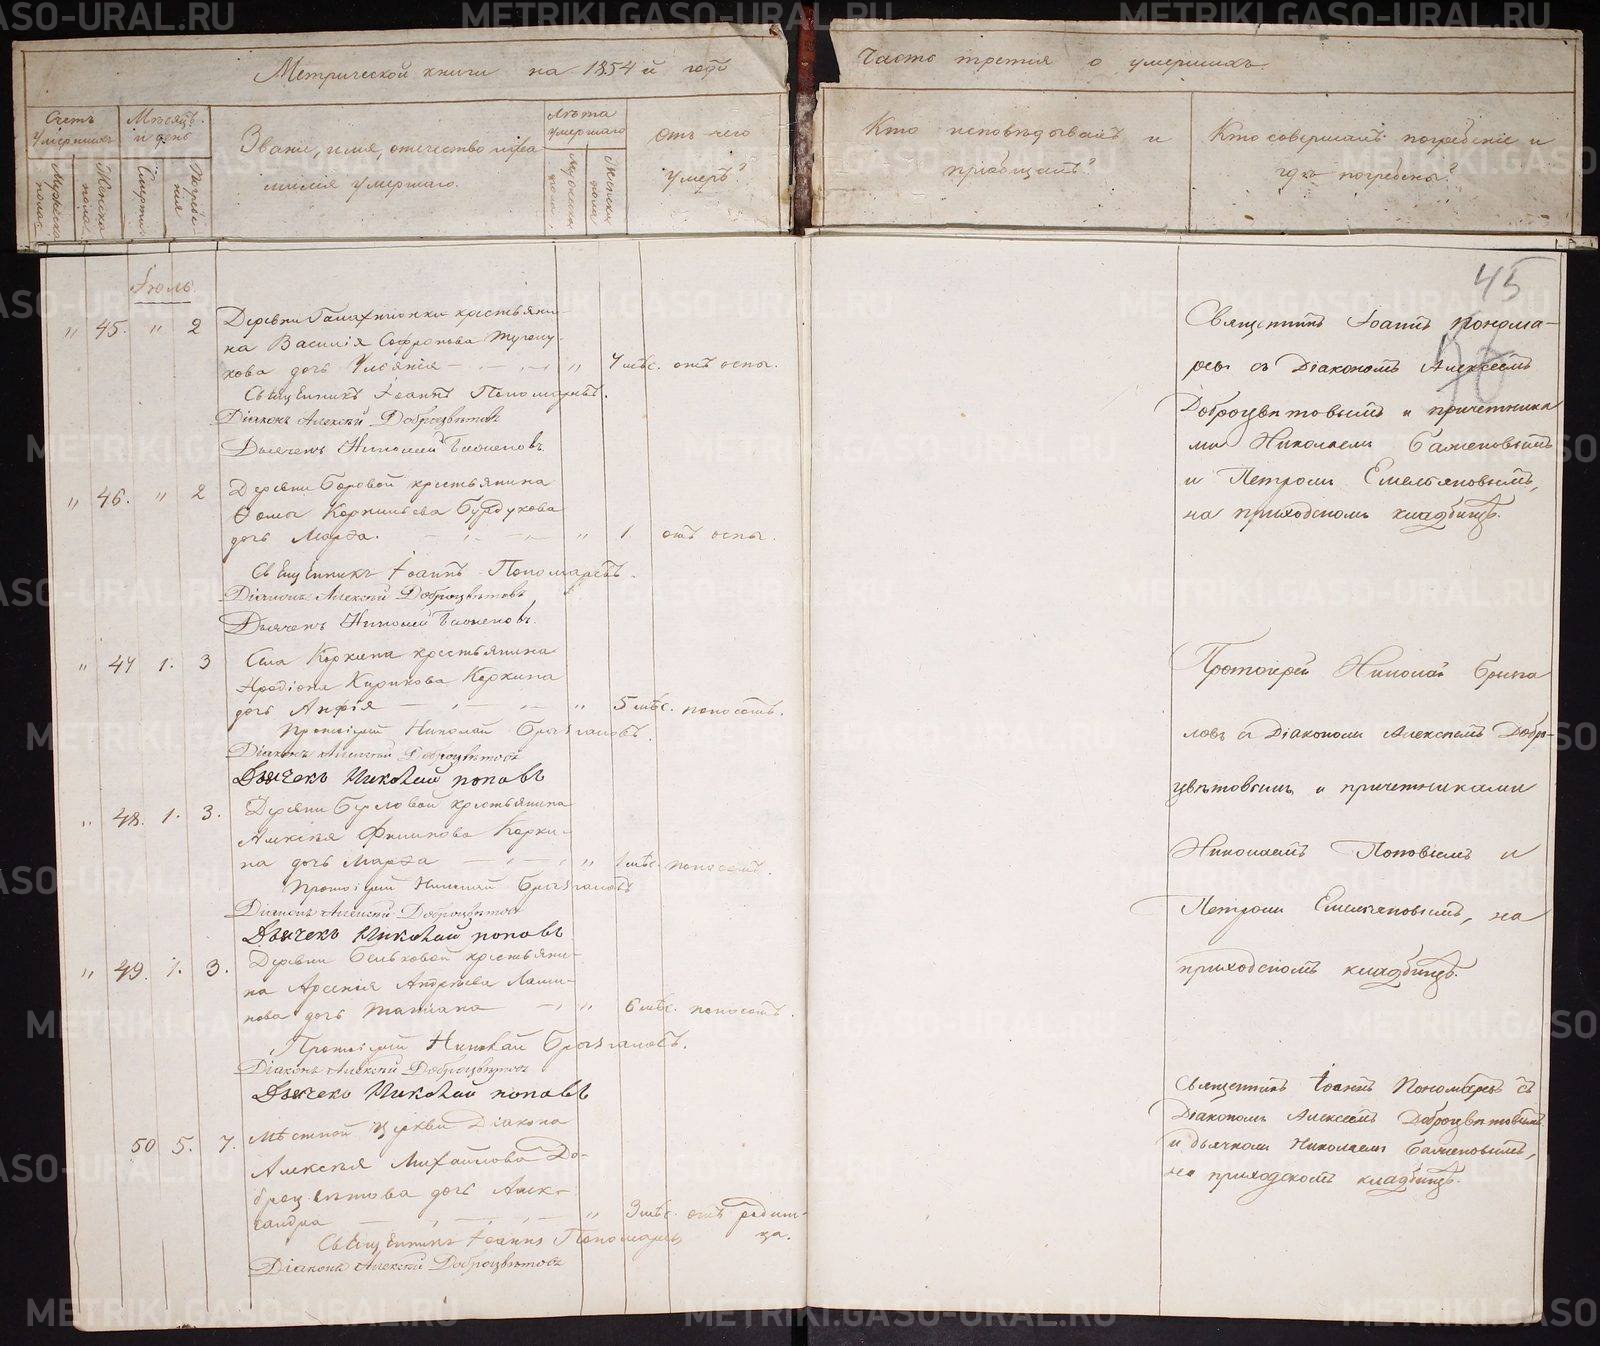 Метрической книги на 1854й годъ
Часть третія о умершихъ.
Счетъ умершихъ
Мужеска пола
Женска пола
Мѣсяцъ и день
Смерти
Погребенія
Званіе, имя, отчество и фамилія умершаго.
Лѣта умершаго
Мужеска пола
Женска пола
Отъ чего умеръ?
Кто исповѣдывалъ и пріобщалъ?
Кто совершалъ погребеніе и гдѣ погребены?
45
Іюль
" 45. " 2 Деревни крестьяни-
на Василія Софронова
дочь " 7 мѣс. отъ оспы.
Священникъ Іоаннъ Пономаревъ.
Діаконъ Алексѣй Доброцвѣтовъ
Дьячекъ Николай Баженовъ.
" 46. " 2 Деревни Боровой крестьянина
Ѳомы Корнильева Бурдукова
дочь Марѳа. " 1. отъ оспы.
Священникъ Іоаннъ Пономаревъ.
Діаконъ Алексѣй Доброцвѣтовъ
Дьячекъ Николай Баженовъ.
" 47 1. 3 Села Коркина крестьянина
Иродіона Кирикова Коркина
дочь Анфія " 5 мѣс. поносомъ.
Протоіерей Николай Брызгаловъ.
Діаконъ Алексѣй Доброцвѣтовъ
Дьячекъ Николай Поповъ
" 48. 1. 3. Деревни крестьянина
Алексѣя Филипова Корки-
на дочь Марѳа " 1 мѣс. поносомъ.
Протоіерей Николай Брызгаловъ
Діаконъ Алексѣй Доброцвѣтовъ
Дьячекъ Николай Поповъ
" 49. 1. 3. Деревни крестьяни-
на Арсенія Андреева
дочь Татіана " 6 мѣс. поносомъ.
Протоіерей Николай Брызгаловъ.
Діаконъ Алексѣй Доброцвѣтовъ
Дьячекъ Николай Поповъ
50 5. 7. Мѣстной церкви Діакона
Алексѣя Михайлова До-
броцвѣтова дочь Алек-
сандра " 3 мѣс. отъ родим-
ца.
Священникъ Іоаннъ Пономаревъ
Діаконъ Алексѣй Доброцвѣтовъ
Священникъ Іоаннъ Понома-
ревъ съ Діакономъ Алексѣемъ
Доброцвѣтовымъ и причетника
ми Николаемъ Баженовымъ
и Петромъ Емельяновымъ,
на приходскомъ кладбищѣ.
Протоіерей Николай Брызга
ловъ съ Діакономъ Алексѣемъ Добро-
цвѣтовымъ и причетниками
Николаемъ Поповымъ и
Петромъ Емельяновымъ, на
приходскомъ кладбищѣ.
Священникъ Іоаннъ Пономаревъ съ
Діакономъ Алексѣемъ Доброцвѣтовымъ
и дьячкомъ Николаемъ Баженовымъ,
на приходскомъ кладбищѣ.
METRIKI.GASO-URAL.RU